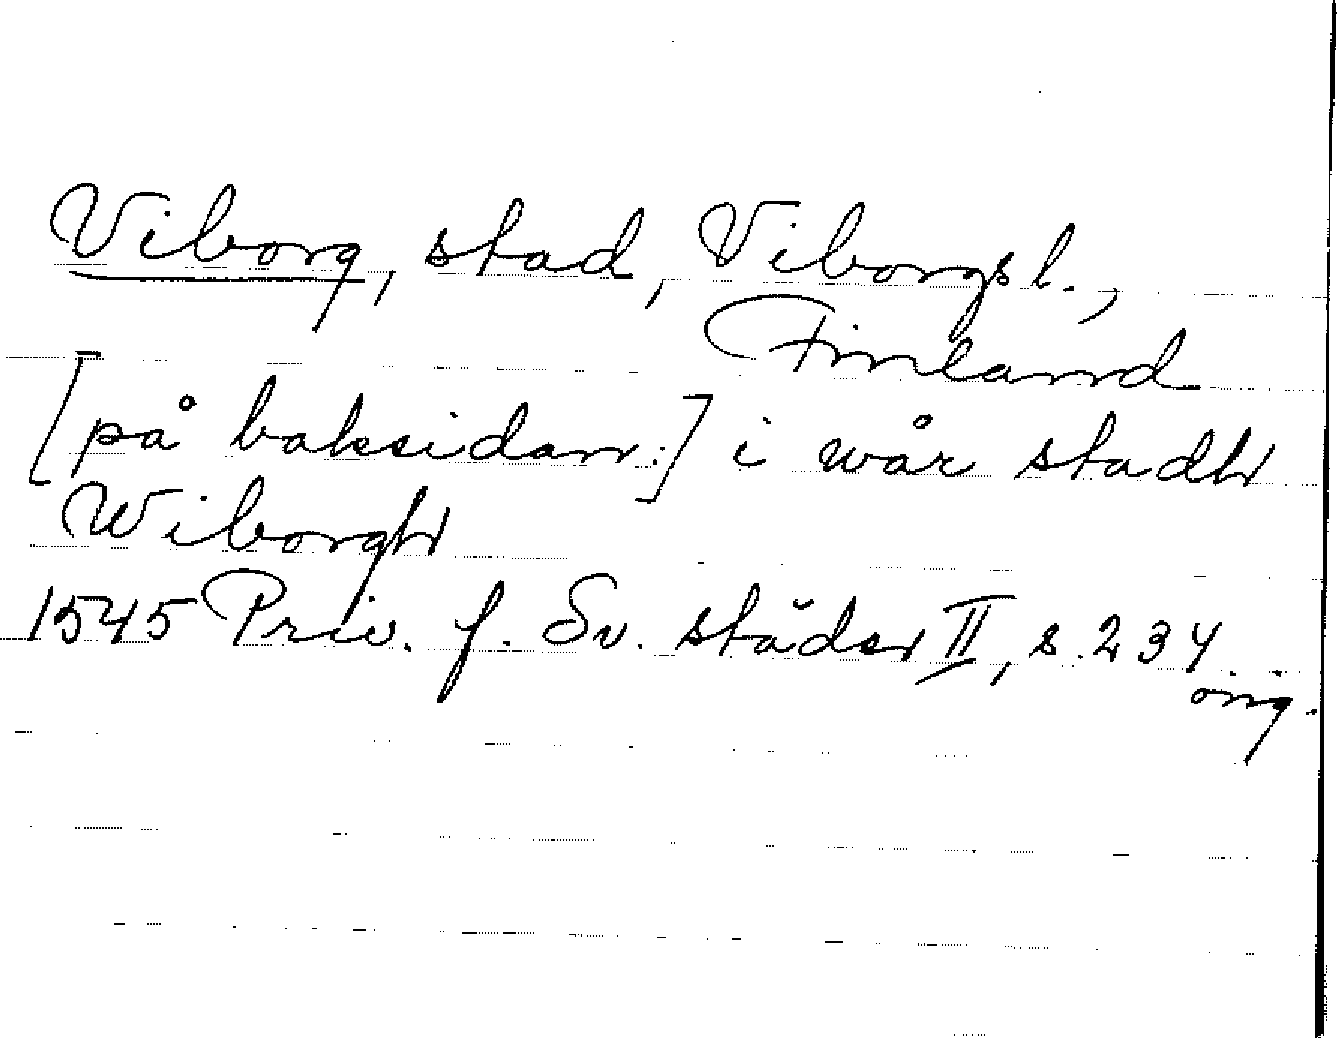 Viborg, stad, Viborgsl.,
Finland
[på baksidan:] i wår stadh
Wiborgh
1545 Priv. f. Sv. städer II, s. 234
orig.